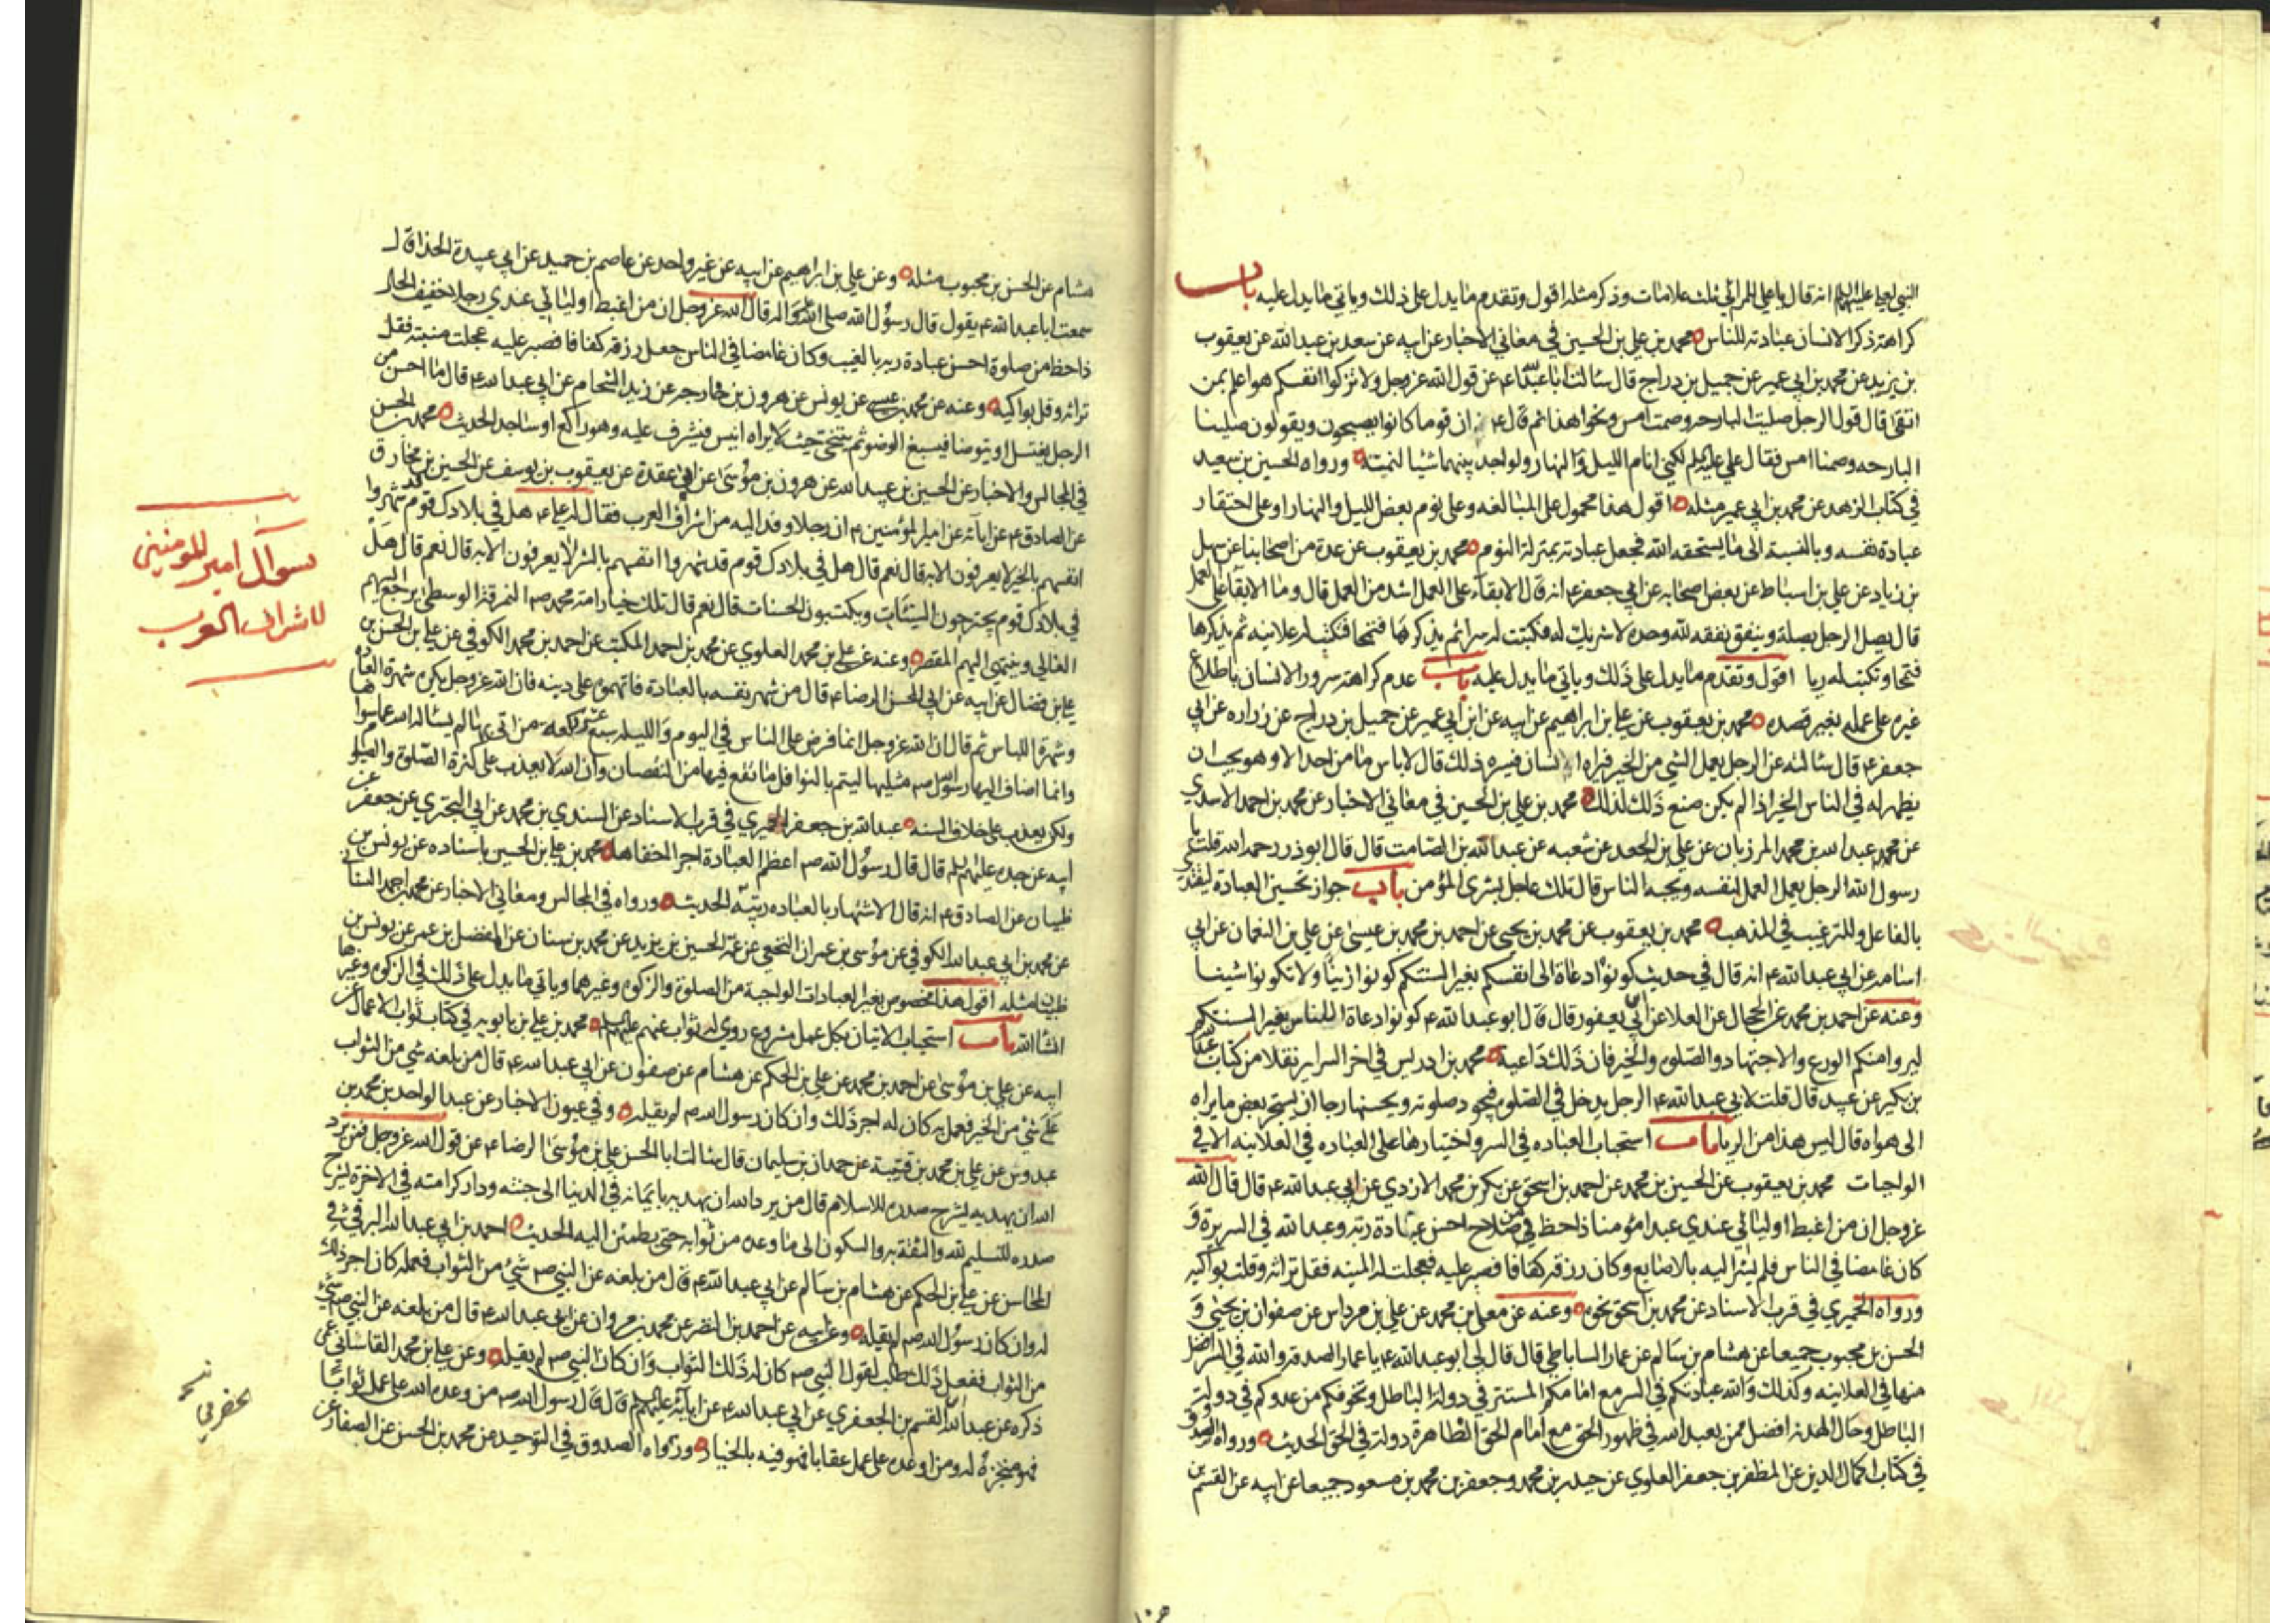 النبي لعلي عليهما السلم انه قال يا علي للمرائي ثلث علامات وذكر مثله اقول وتقدم ما يدل على ذلك وياتي ما يدل عليه باب
كراهة ذكر الانسان عبادته للناس محمد بن علي بن الحسين في معاني الاخبار عن ابيه عن سعد بن عبد الله عن يعقوب
بن يزيد عن محمد بن ابي عمير عن جميل بن دراج قال سالت ابا عبد الله ع عن قول الله عز وجل ولا تزكوا انفسكم هو اعلم بمن
اتقى قال قول الرجل صليت البارحه وصمت امس ونحو هذا ثم قال ع ان قوما كانوا يصبحون ويقولون صلينا
البارحه وصمنا امس فقال علي عليه السلم لكني انام الليل والنهار ولو اجد بينهما شيئا لنمته ورواه الحسين بن سعيد
في كتاب الزهد عن محمد بن ابي عمير مثله اقول هذا محمول على المبالغه وعلى نوم بعض الليل والنهار او على احتقار
عبادة نفسه وبالنسبة الى ما يستحقه الله فجعل عبادته بمنزلة النوم محمد بن يعقوب عن عدة من اصحابنا عن سهل
بن زياد عن علي بن اسباط عن بعض اصحابه عن ابي جعفر ع انه قال الابقاء على العمل اشد من العمل قال وما الابقا على العمل
قال يصل الرجل بصلة وينفق نفقه لله وحده لا شريك له فكتبت له سرا ثم يذكرها فتمحا فتكتب له علانيه ثم يذكرها
فتمحا وتكتب له ريا اقول وتقدم ما يدل على ذلك وياتي ما يدل عليه باب عدم كراهة سرور الانسان باطلاع
غيره على عمله بغير قصده محمد بن يعقوب عن علي بن ابراهيم عن ابيه عن ابن ابي عمير عن جميل بن دراج عن زراره عن ابي
جعفر ع قال سالته عن الرجل يعمل الشي من الخير فيراه انسان فيسره ذلك قال لا باس ما من احد الا وهو يحب ان
يظهر له في الناس الخير اذا لم يكن صنع ذلك لذلك محمد بن علي بن الحسين في معاني الاخبار عن محمد بن احمد الاسدي
عن محمد عبد الله بن محمد المرزبان عن علي بن الجعد عن شعبه عن عبد الله بن الصامت قال قال ابو ذر رحمه الله قلت يا
رسول الله الرجل يعمل العمل لنفسه ويحبه الناس قال تلك عاجل بشرى المؤمن باب جواز تحسين العبادة ليقتدى
بالفاعل وللترغيب في المذهب محمد بن يعقوب عن محمد بن يحيى عن احمد بن محمد بن عيسى عن علي بن النعمان عن ابي
اسامه عن ابي عبد الله ع انه قال في حديث كونوا دعاة الى انفسكم بغير السنتكم كونوا زينا ولا تكونوا شينا
وعنه عن احمد بن محمد عن الحجال عن العلا عن ابن ابي يعفور قال قال ابو عبد الله ع كونوا دعاة للناس بغير السنتكم
ليروا منكم الورع والاجتهاد والصلوه والخير فان ذلك داعية محمد بن ادريس في اخر السراير نقلا من كتاب عبد الله
بن بكير عن عبيد قال قلت لابي عبد الله ع الرجل يدخل في الصلوه فيجود صلوته ويحسنها رجا ان يستجر بعض ما يراه
الى هواه قال ليس هذا من الريا باب استحباب العباده في السر واختيارها على العباده في العلانيه الا في
الواجبات محمد بن يعقوب عن الحسين بن محمد عن احمد بن اسحق عن بكر بن محمد الازدي عن ابي عبد الله ع قال قال الله
عز وجل ان من اغبط اوليائي عندي عبدا مؤمنا ذا حظ من صلاح احسن عبادة ربه وعبد الله في السريرة و
كان غامضا في الناس فلم يشر اليه بالاصابع وكان رزقه كفافا فصبر عليه فعجلت له المنيه فقل تراثه وقلت بواكيه
ورواه الحميري في قرب الاسناد عن محمد بن اسحق نحوه وعنه عن معلى بن محمد عن علي بن مرداس عن صفوان بن يحيى و
الحسن بن محبوب جميعا عن هشام بن سالم عن عمار الساباطي قال قال لي ابو عبد الله ع يا عمار الصدقه والله في السر افضل
منها في العلانيه وكذلك والله عبادتكم في السر مع امامكم المستتر في دولة الباطل وتخوفكم من عدوكم في دولة
الباطل وحال الهدنه افضل ممن يعبد الله في ظهور الحق مع امام الحق الظاهر في دولة الحق الحديث ورواه الصدوق
في كتاب اكمال الدين عن المظفر بن جعفر العلوي عن حيدر بن محمد وجعفر بن محمد بن مسعود جميعا عن ابيه عن القسم بن
هشام عن الحسن بن محبوب مثله وعن علي بن ابراهيم عن ابيه عن غير واحد عن عاصم بن حميد عن ابي عبيدة الحذا قال
سمعت ابا عبد الله ع يقول قال رسول الله صلى الله عليه واله قال الله عز وجل ان من اغبط اوليائي عندي رجلا خفيف الحال
ذا حظ من صلوة احسن عبادة ربه بالغيب وكان غامضا في الناس جعل رزقه كفافا فصبر عليه عجلت منيته فقل
تراثه وقل بواكيه وعنه عن محمد بن عيسى عن يونس عن هرون بن خارجه عن زيد الشحام عن ابي عبد الله ع قال ما احسن من
الرجل يغتسل او يتوضا فيسبغ الوضو ثم يتنحى حيث لا يراه انيس فيشرف عليه وهو راكع او ساجد الحديث محمد بن الحسن
في المجالس والاخبار عن الحسين بن عبيد الله عن هرون بن موسى عن ابن عقدة عن يعقوب بن يوسف عن الحسين بن مخارق
عن الصادق ع عن ابائه عن امير المؤمنين ع ان رجلا وفد اليه من اشراف العرب فقال له علي ع هل في بلادك قوم قد شهروا
انفسهم بالخير لا يعرفون الا به قال نعم قال هل في بلادك قوم قد شهروا انفسهم بالشر لا يعرفون الا به قال نعم قال هل
في بلادك قوم يجترحون السيئات ويكتسبون الحسنات قال نعم قال تلك خيار امة محمد صم النمرقة الوسطى يرجع اليهم
الغالي وينتهي اليهم المقصر وعنه عن علي بن محمد العلوي عن محمد بن احمد المكتب عن احمد بن محمد الكوفي عن علي بن الحسن بن
علي بن فضال عن ابيه عن ابي الحسن الرضا ع قال من شهر نفسه بالعبادة فاتهموه على دينه فان الله عز وجل يكره شهرة العباده
وشهرة اللباس ثم قال ان الله عز وجل انما فرض على الناس في اليوم والليله سبع عشرة ركعه من اتى بها لم يساله الله عما سواها
وانما اضاف اليها رسول الله صم مثليها ليتم بالنوافل ما يقع فيها من النقصان وان الله لا يعذب على كثرة الصلوة والصوم
ولكن يعذب على خلاف السنه عبد الله بن جعفر الحميري في قرب الاسناد عن السندي بن محمد عن ابي البختري عن جعفر عن
ابيه عن جده عليهم السلم قال قال رسول الله صم اعظم العبادة اجرا اخفاها محمد بن علي بن الحسين باسناده عن يونس بن
ظبيان عن الصادق ع انه قال الاشتهار بالعباده ريبة الحديث ورواه في المجالس ومعاني الاخبار عن محمد بن احمد السناني
عن محمد بن ابي عبد الله الكوفي عن موسى بن عمران النخعي عن عمه الحسين بن يزيد عن محمد بن سنان عن المفضل بن عمر عن يونس بن
ظبيان مثله اقول هذا مخصوص بغير العبادات الواجبة من الصلوة والزكوه وغيرهما وياتي ما يدل على ذلك في الزكوه وغيرها
انشا الله باب استحباب الاتيان بكل عمل مشروع روي له ثواب عنهم عليهم السلم محمد بن علي بن بابويه في كتاب ثواب الاعمال عن
ابيه عن علي بن موسى عن احمد بن محمد عن علي بن الحكم عن هشام عن صفوان عن ابي عبد الله ع قال من بلغه شي من الثواب
على شي من الخير فعمل به كان له اجر ذلك وان كان رسول الله صم لم يقله وفي عيون الاخبار عن عبد الواحد بن محمد بن
عبدوس عن علي بن محمد بن قتيبة عن حمدان بن سليمان قال سالت ابا الحسن علي بن موسى الرضا ع عن قول الله عز وجل فمن يرد
الله ان يهديه يشرح صدره للاسلام قال من يرد الله ان يهديه بايمانه في الدنيا الى جنته ودار كرامته في الاخرة يشرح
صدره للتسليم لله والثقة به والسكون الى ما وعده من ثوابه حتى يطمئن اليه الحديث احمد بن ابي عبد الله البرقي في
المحاسن عن علي بن الحكم عن هشام بن سالم عن ابي عبد الله ع قال من بلغه عن النبي صم شي من الثواب فعمله كان اجر ذلك
له وان كان رسول الله صم لم يقله وعن ابيه عن احمد بن النضر عن محمد بن مروان عن ابي عبد الله ع قال من بلغه عن النبي صم شي
من الثواب ففعل ذلك طلب لقول النبي صم كان له ذلك الثواب وان كان النبي صم لم يقله وعن علي بن محمد القاساني عمن
ذكره عن عبد الله بن القسم الجعفري عن ابي عبد الله ع عن ابائه عليهم السلم قال قال رسول الله صم من وعده الله على عمل ثوابا
فهو منجزه له ومن اوعده على عمل عقابا فهو فيه بالخيار ورواه الصدوق في التوحيد عن محمد بن الحسن عن الصفار عن
سوآل امير المومنين
لاشراف العرب